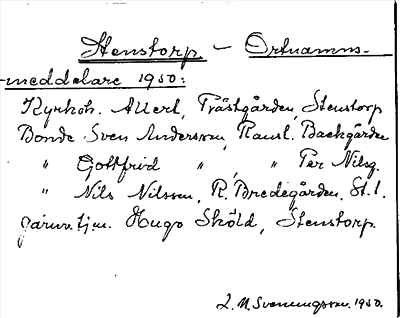 Stenstorp. – Ortnamns-
-meddelare 1950:
Kyrkoh. Allert, Prästgården, Stenstorp
Bonde Sven Andersson, Ransl. Backgården
" Gottfrid " , " Per Nilsg.
" Nils Nilsson, R. Bredegården. St. 1.
Järnv.tjm. Hugo Sköld, Stenstorp.
L. N. Svenungsson. 1950.